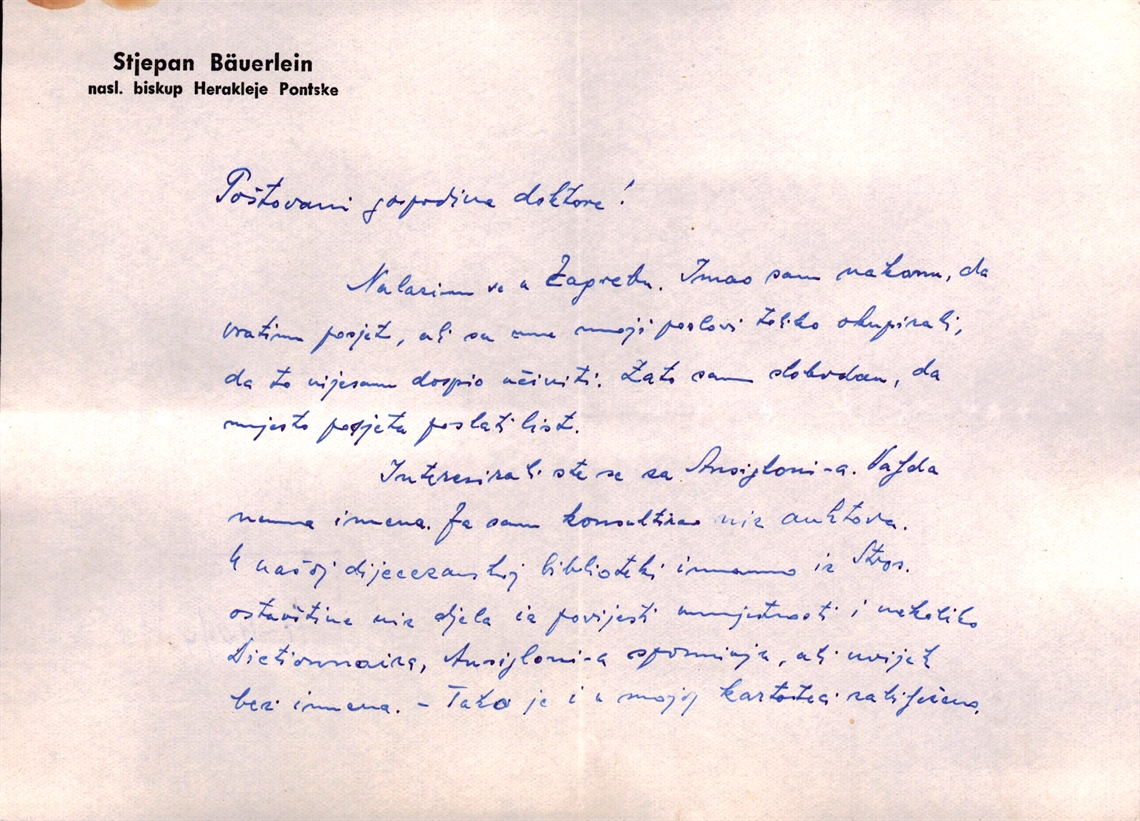 Stjepan Bäuerlein
nasl. biskup Herakleje Pontske
Poštovani gospodine doktore!
Nalazim se u Zagrebu. Imao sam nakanu, da
vratim posjet, ali su me moji poslovi toliko okupirali,
da to nijesam dospio učiniti. Zato sam slobodan, da
mjesto posjeta poslati list.
Interesirali ste se za Ansiglioni-a. Valjda
nema imena. Ja sam konsultirao niz auktora.
U našoj dijecezanskoj biblioteki imamo iz Stros.
ostavštine niz djela iz povijesti umjetnosti i nekoliko
Dictionnaira, Ansiglioni-a spominju, ali uvijek
bez imena. – Tako je i u mojoj kartoteci zabilježeno.